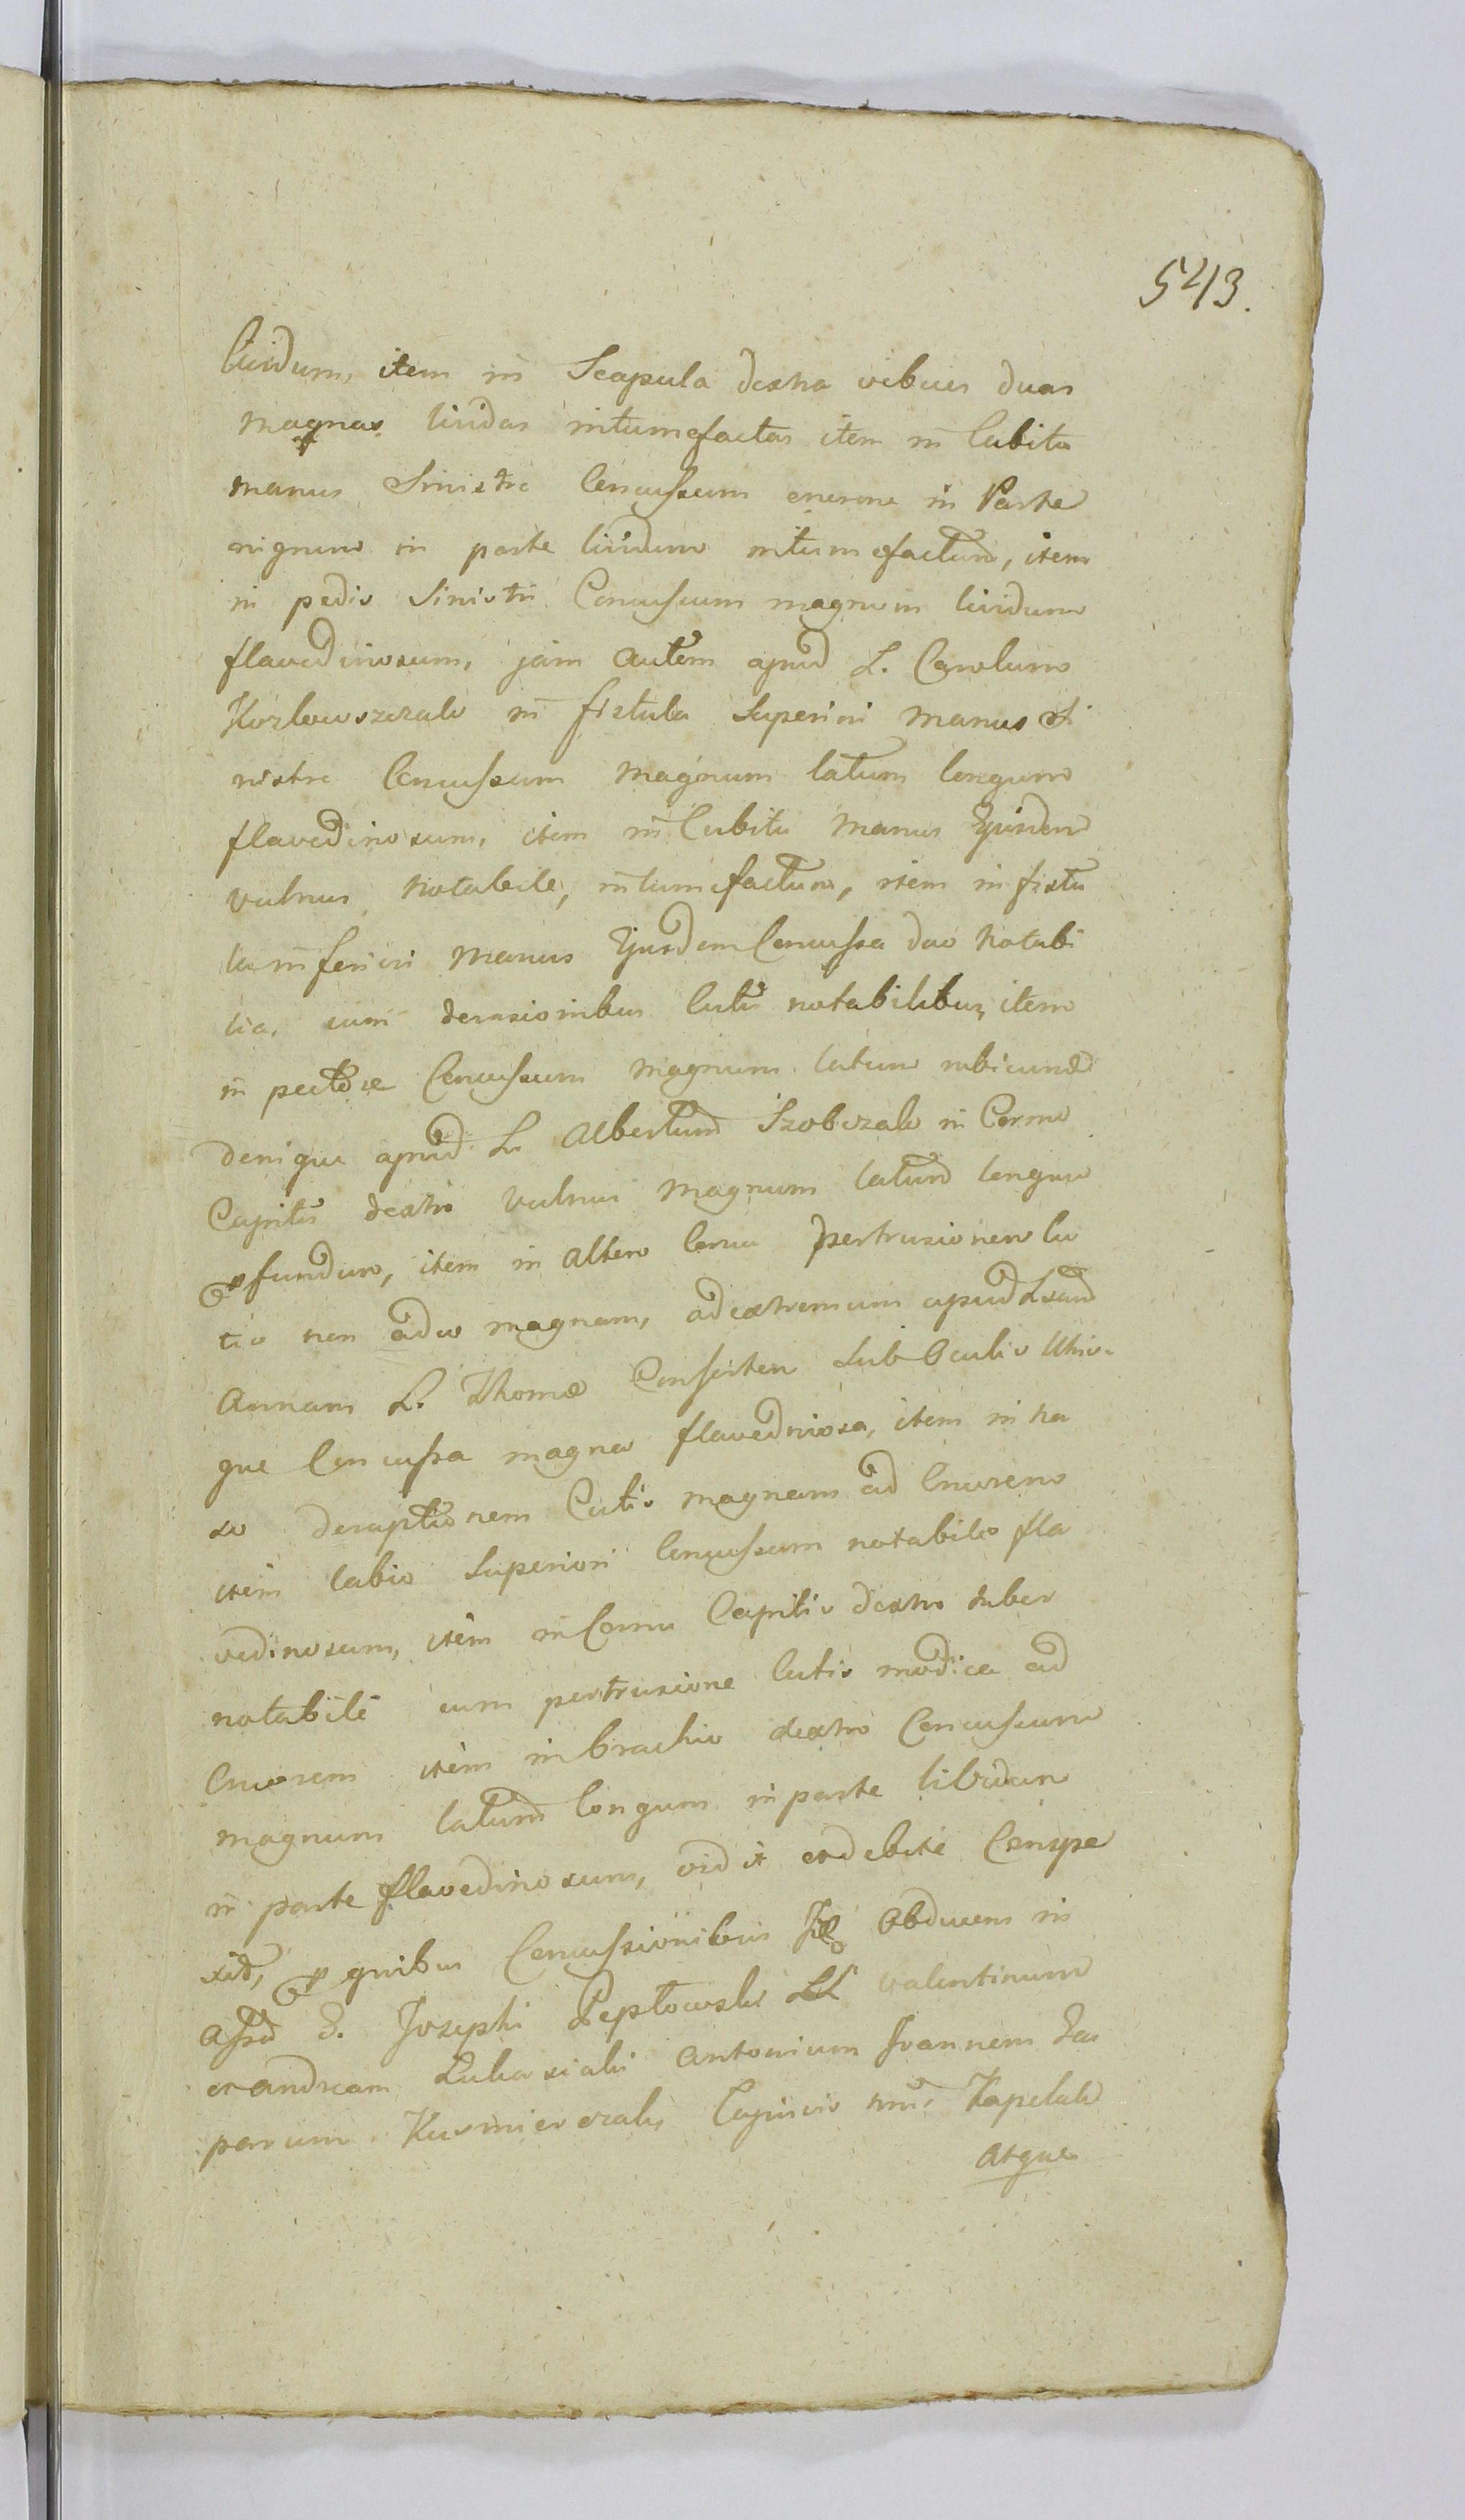 543.
lividum, item in Scapula dextra vibices duas
magnas lividas intumefactas item in Cubito
manus Sinistre Concussum enorme in Parte
nigrum in parte lividum intumefactum, item
in pedis Sinistri Concussum magnum lividum
flavedinosum, jam autem apud L. Carolum
Kozlowszczak in fistula Superiori manus Si
nistre Concussum magnum latum longum
flavedinosum, item in Cubitu manus Ejusdem
vulnus notabile, intumefactum, item in fistu
la inferiori manus Ejusdem Concussa duo notabi
lia, cum derasionibus Cutis notabilibus, item
in pectore Concussum magnum latum rubicund
denique apud L. Albertum Szobczak in Cornu
Capitis dextro vulnus magnum latum longum
pfundum, item in altero Cornu pertrusionem Cu
tis non adeo magnam, ad extremum apud
Annam L. Thomæ Consorten Sub Oculis Utris
que Concussa magna flavedinosa, item in na
so deraptionem Cutis magnam ad Cruorem
item labio Superiori Concussum notabile fla
vedinosum, item in Cornu Capitis dextro tuber
notabile cum pertrusione Cutis modica ad
Cruorem item in brachio dextro Concussum
magnum latum longum in parte lividum
in parte flavedinosum, vidit et debite Conspe
xit, p quibus Concussionibus Abducens in
G. Josephi Peplowski LL valentinum
et andream Lukasiaki Antonium Joannem Gas
parum Kusmierczak, Kapelak
Atque